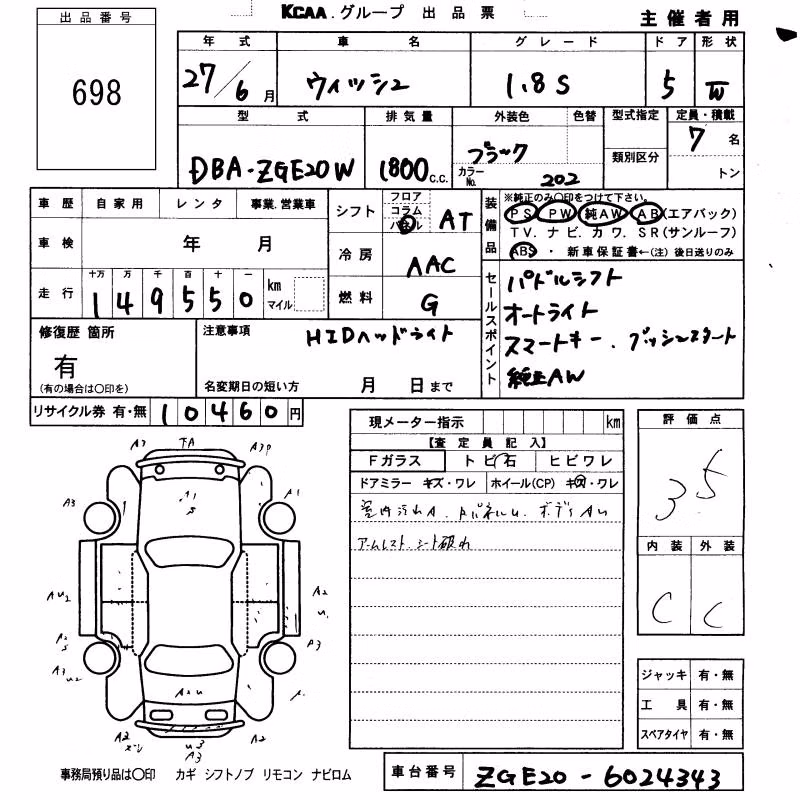 出品番号
698
KCAA.グループ 出品票
主催者用
年式 車名 グレード ドア 形状
27/6月 ウィッシュ 1.8S 5 W
型式 排気量 外装色 色替 型式指定 定員・積載
DBA-ZGE20W 1800c.c. ブラック 7名
カラーNo. 202 類別区分 トン
車歴 自家用 レンタ 事業.営業車
車検 年 月
走行 十万 万 千 百 十 一
149550 km マイル
シフト フロア コラム パネル AT
冷房 AAC
燃料 G
装備品 ※純正のみ○印をつけて下さい。
PS PW 純AW AB(エアバック)
TV. ナビ. カワ. SR(サンルーフ)
ABS ・ 新車保証書←(注)後日送りのみ
セールスポイント
パドルシフト
オートライト
スマートキー.プッシュスタート
純正AW
修復歴 箇所
有
(有の場合は○印を)
注意事項 HIDヘッドライト
名変期日の短い方 月 日まで
リサイクル券 有・無 10460円
現メーター指示 km
【査定員記入】
Fガラス トビ石 ヒビワレ
ドアミラー キズ・ワレ ホイール(CP) キズ・ワレ
室内汚れA. ボディAU
アームレスト.シート破れ
評価点
3.5
内装 外装
C C
A3 下A A3P
A3 A1
A1
S
AU2 A2
U1
A2
S P3
A3
U2
A2U
A2 U3 A2
A3
ジャッキ 有・無
工具 有・無
スペアタイヤ 有・無
事務局預り品は○印 カギ シフトノブ リモコン ナビロム
車台番号 ZGE20-6024343